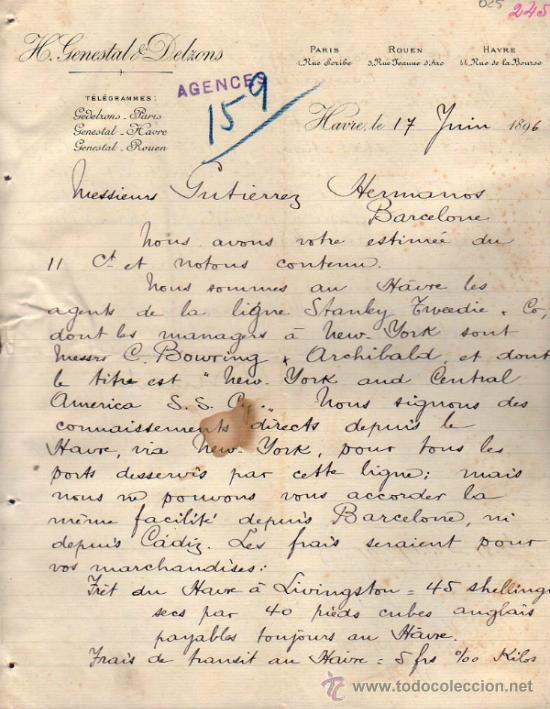 025 245
H. Genestal & Delzons
PARIS ROUEN HAVRE
1 Rue Scribe 5, Rue Jeanne d'Arc 44 Rue de la Bourse
AGENCES
159
TÉLÉGRAMMES:
Gedelzons - Paris
Genestal - Havre
Genestal - Rouen
Havre, le 17 Juin 1896
Messieurs Gutierrez Hermanos
Barcelone
Nous avons votre estimée du
11 Ct et notons contenu.
Nous sommes au Hâvre les
agents de la ligne Stanley Tweedie & Co,
dont les managers à New-York sont
Messrs C. Bowring & Archibald, et dont
le titre est "New-York and Central
America S. S. Co". Nous signons des
connaissements directs depuis le
Havre, via New-York, pour tous les
ports desservis par cette ligne; mais
nous ne pouvons vous accorder la
même facilité depuis Barcelone, ni
depuis Cádiz. Les frais seraient pour
vos marchandises:
Frêt du Havre à Livingston = 45 shellings
secs par 40 pieds cubes anglais
payables toujours au Hâvre.
Frais de transit au Havre = 5 frs %00 Kilos
www.todocoleccion.net